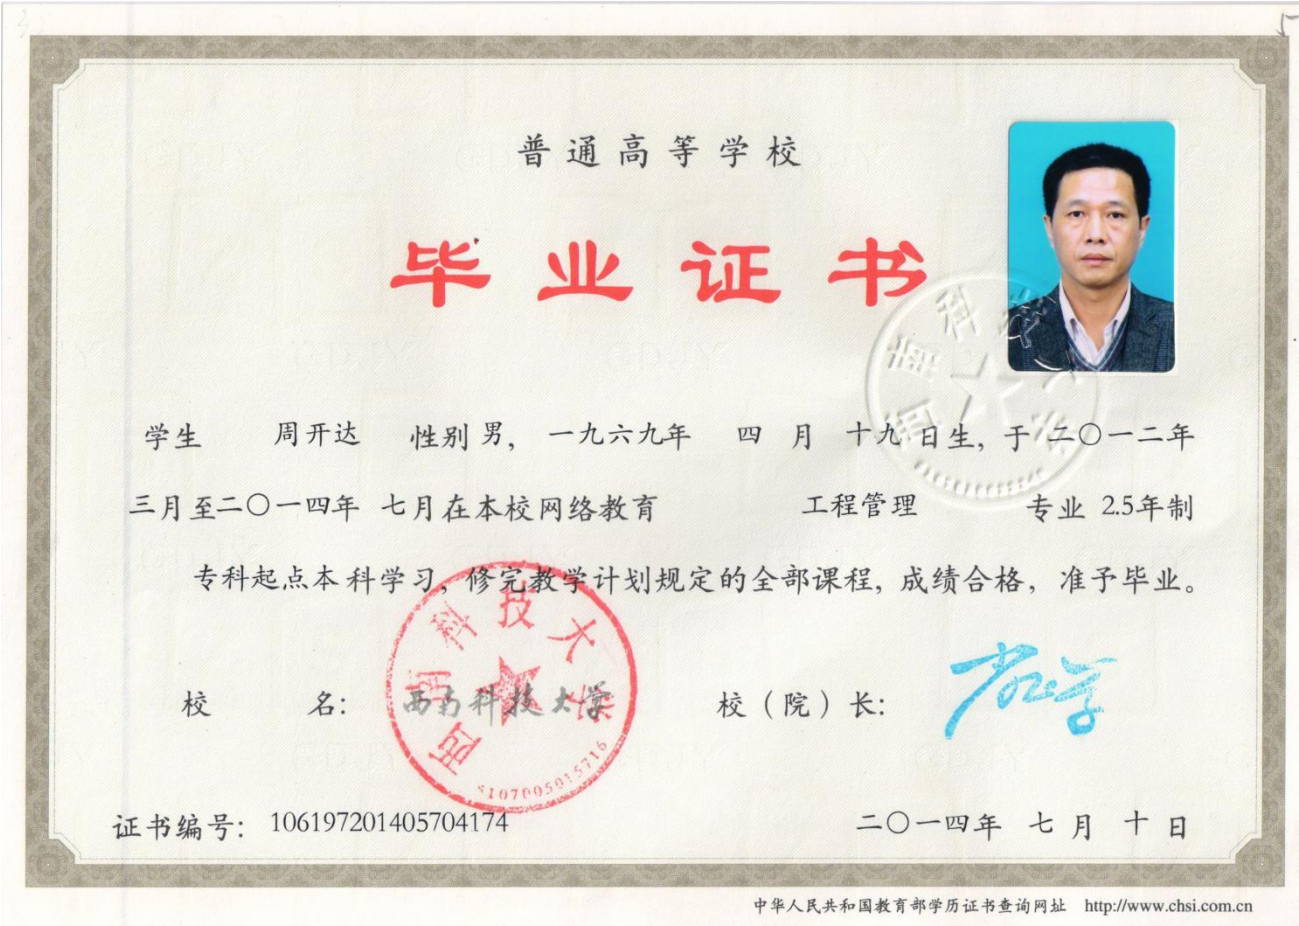 普通高等学校
毕业证书
学生 周开达 性别 男，一九六九年 四 月 十九 日生，于 二〇一二年
三月至二〇一四年 七月在本校网络教育 工程管理 专业 2.5年制
专科起点本科学习，修完教学计划规定的全部课程，成绩合格，准予毕业。
校 名： 西南科技大学 校（院）长：
西南科技大学
5107005015716
证书编号： 106197201405704174 二〇一四年 七 月 十 日
中华人民共和国教育部学历证书查询网址 http://www.chsi.com.cn